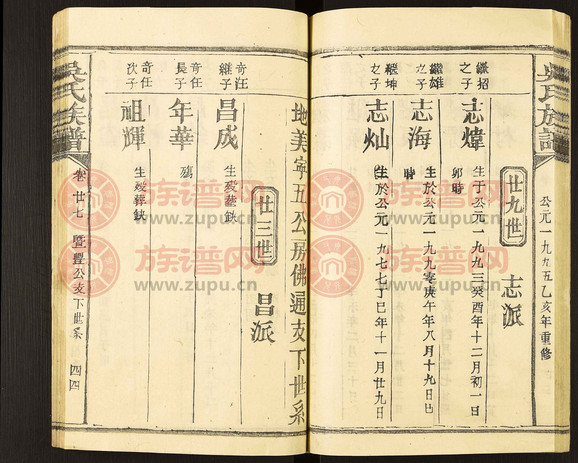 吳氏族譜
公元一九九五乙亥年重修
廿九世
志派
繼招之子
志煒
生于公元一九九三癸酉年十二月初一日卯時
繼雄之子
志海
生於公元一九九零庚午年八月十九日巳時
繼坤之子
志灿
生於公元一九七七丁巳年十一月廿九日
地美寧五公房佛通支下世系
廿三世
昌派
奇任繼子
昌成
生歿葬缺
奇任長子
年華
殤
奇任次子
祖輝
生歿葬缺
吳氏族譜
卷廿七
暨豐公支下世系
四四
族谱网
www.zupu.cn
族谱网
www.zupu.cn
族谱网
www.zupu.cn
族谱网
www.zupu.cn